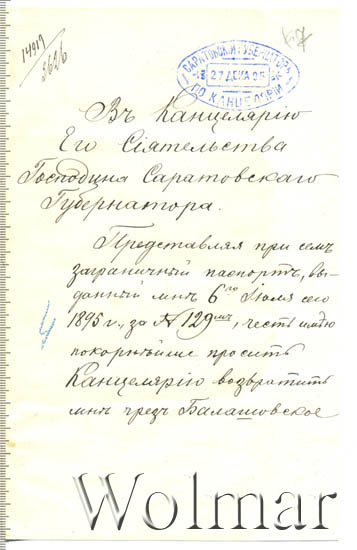 14919
2626
САРАТОВСКІЙ ГУБЕРНАТОРЪ
27 ДЕКА 95
ПО КАНЦЕЛЯРІИ
Въ Канцелярію
Его Сіятельства
Господина Саратовскаго
Губернатора.
Представляя при семъ
заграничный паспортъ, вы-
данный мнѣ 6го Іюля сего
1895 г., за № 129мъ, честь имѣю
покорнѣйше просить
Канцелярію возвратить
мнѣ чрезъ Балашовское
Wolmar